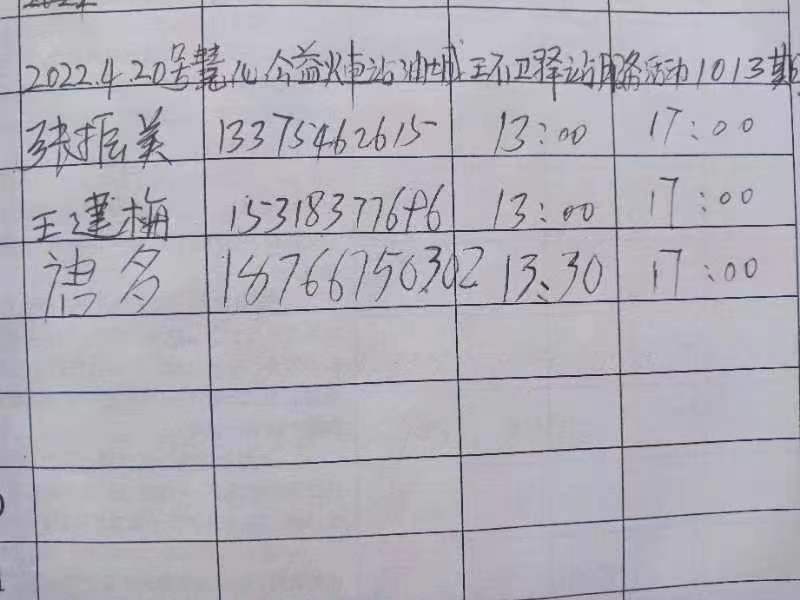 2022.4.20号慧心公益火車站油城环卫驿站服务活动1013期
张振美 13375462615 13:00 17:00
王建梅 15318377696 13:00 17:00
唐多 18766750302 13:30 17:00